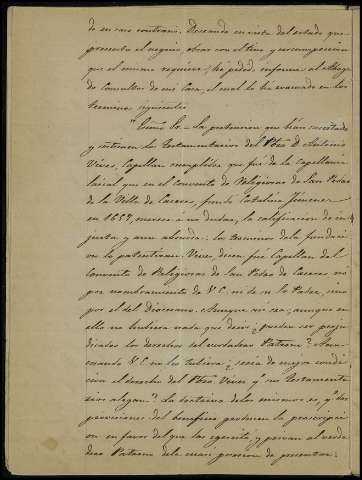 do en caso contrario. Deseando en vista del estado que
presenta el negocio, obrar con el tino y circunspeccion
que el mismo requiere; he pedido informe al Aboga
do Consultor de mi Casa, el cual lo ha evacuado en los
terminos siguientes
"Exmo Sr. La pretension que han suscitado
y sostienen los Testamentarios del Pbro D. Antonio
Vives, Capellan cumplidor que fué de la Capellania
laical que en el Convento de Religiosas de San Pedro
de la Villa de Caceres, fundó Catalina Jimenez
en 1657, merece á no dudar, la calificacion de in
justa y aun absurda: los terminos de la fundaci
on lo patentizan. Vives, dicen fue Capellan del
Convento de Religiosas de San Pedro de Caceres no
por nombramiento de V.E. ni de su Sr Padre, sino
por el del Diocesano. Aunque asi sea; aunque en
ello no hubiera nada que decir ¿pueden ser perju
dicados los derechos del verdadero Patrono? Aun
cuando V.E. no los tubiera ¿seria de mejor condi
cion el derecho del Pbro Vives que sus Testamenta
rios alegan? La doctrina de los mismos es, que dos
provisiones del beneficio ganan la prescripci
on en favor del que las egercita, y privan al verda
dero Patrono de la cuasi posesion de presentar: